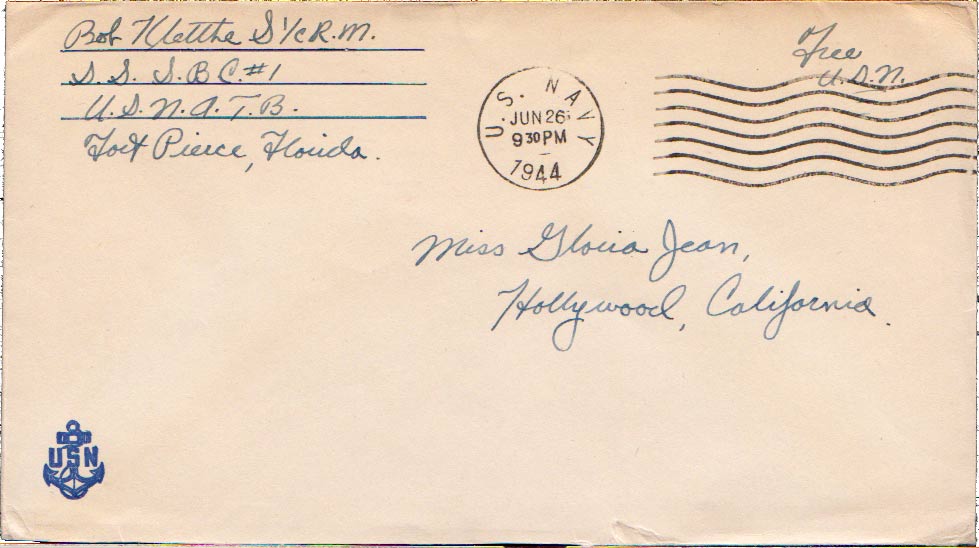 Bob Kletthe S 1/c R.M.
S. S. S.B C. #1
U.S.N.A.T.B.
Fort Pierce, Florida.
U. S. NAVY
JUN 26
9 30 PM
1944
Free
U.S.N.
Miss Gloria Jean,
Hollywood, California.
USN